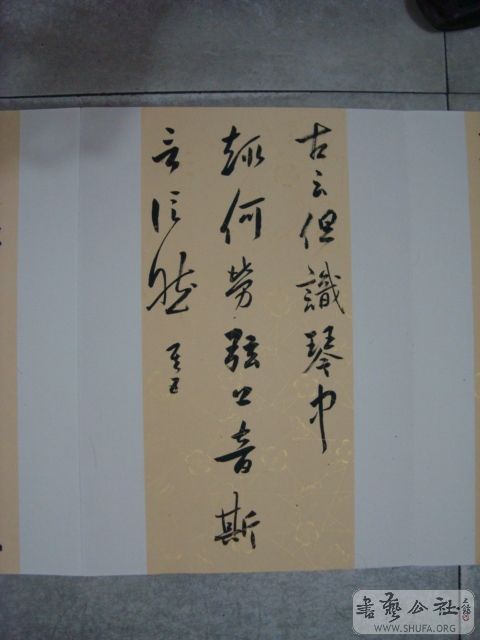 古云但識琴中
趣何勞弦上音斯
言信然 其五
書藝公社
WWW.SHUFA.ORG